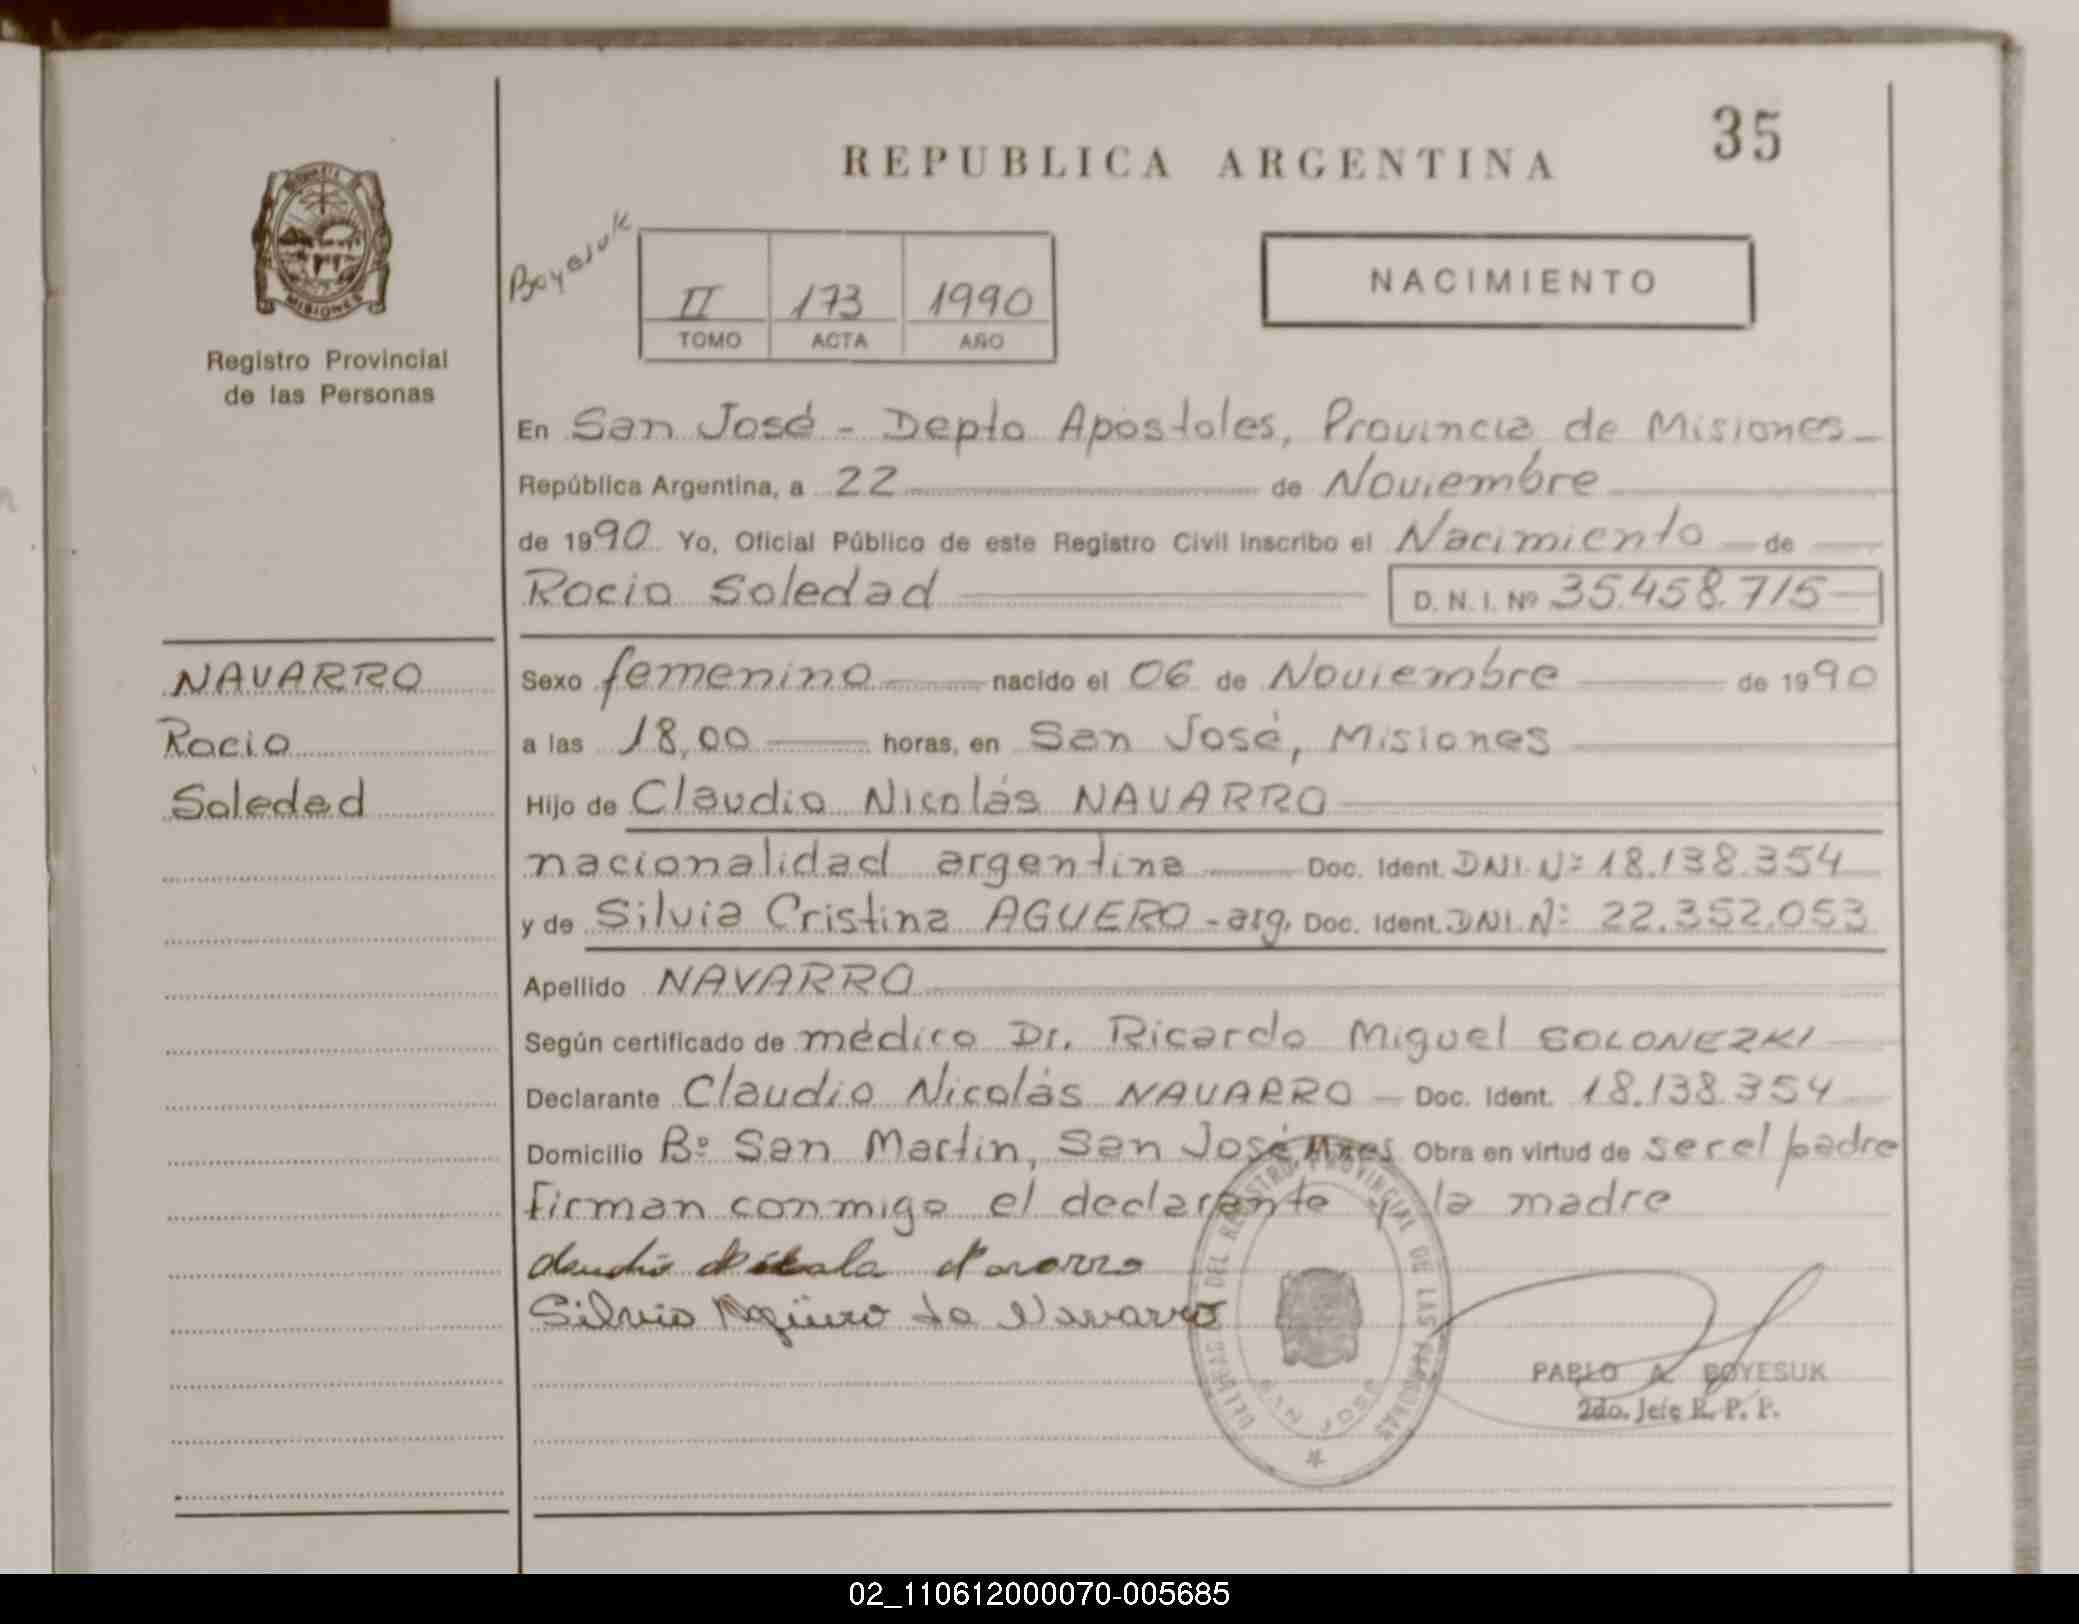 35
REPUBLICA ARGENTINA
MISIONES
Registro Provincial
de las Personas
Boyesuk
II 173 1990
TOMO ACTA AÑO
NACIMIENTO
En San José - Depto Apóstoles, Provincia de Misiones-
República Argentina, a 22 de Noviembre
de 1990 Yo, Oficial Público de este Registro Civil inscribo el Nacimiento de
Rocio Soledad D. N. I. Nº 35.458.715
NAVARRO
Rocio
Soledad
Sexo femenino nacido el 06 de Noviembre de 1990
a las 18,00 horas, en San José, Misiones
Hijo de Claudio Nicolás NAVARRO
nacionalidad argentina Doc. Ident. DNI. Nº 18.138.354
y de Silvia Cristina AGUERO - arg. Doc. Ident. DNI. Nº 22.352.053
Apellido NAVARRO
Según certificado de médico Dr. Ricardo Miguel SOLONEZKI
Declarante Claudio Nicolás NAVARRO - Doc. Ident. 18.138.354
Domicilio Bº San Martin, San José Mnes Obra en virtud de ser el padre
firman conmigo el declarante y la madre
Navarro
Silvia Agüero de Navarro
DEL REGISTRO PROVINCIAL DE LAS PERSONAS
PABLO A. BOYESUK
2do. Jefe R. P. P.
02_110612000070-005685